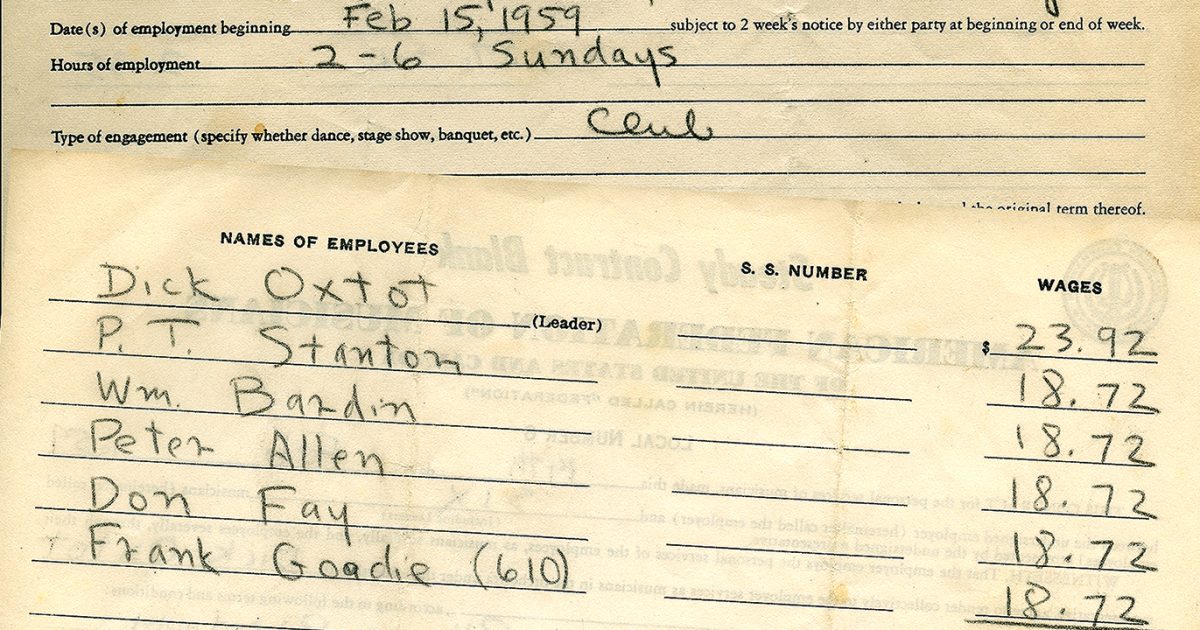 Date(s) of employment beginning Feb 15, 1959 subject to 2 week's notice by either party at beginning or end of week.
Hours of employment 2-6 Sundays
Type of engagement (specify whether dance, stage show, banquet, etc.) Club
the original term thereof.
NAMES OF EMPLOYEES S. S. NUMBER WAGES
Dick Oxtot (Leader) $ 23.92
P. T. Stanton 18.72
Wm. Bardin 18.72
Peter Allen 18.72
Don Fay 18.72
Frank Goadie (610) 18.72